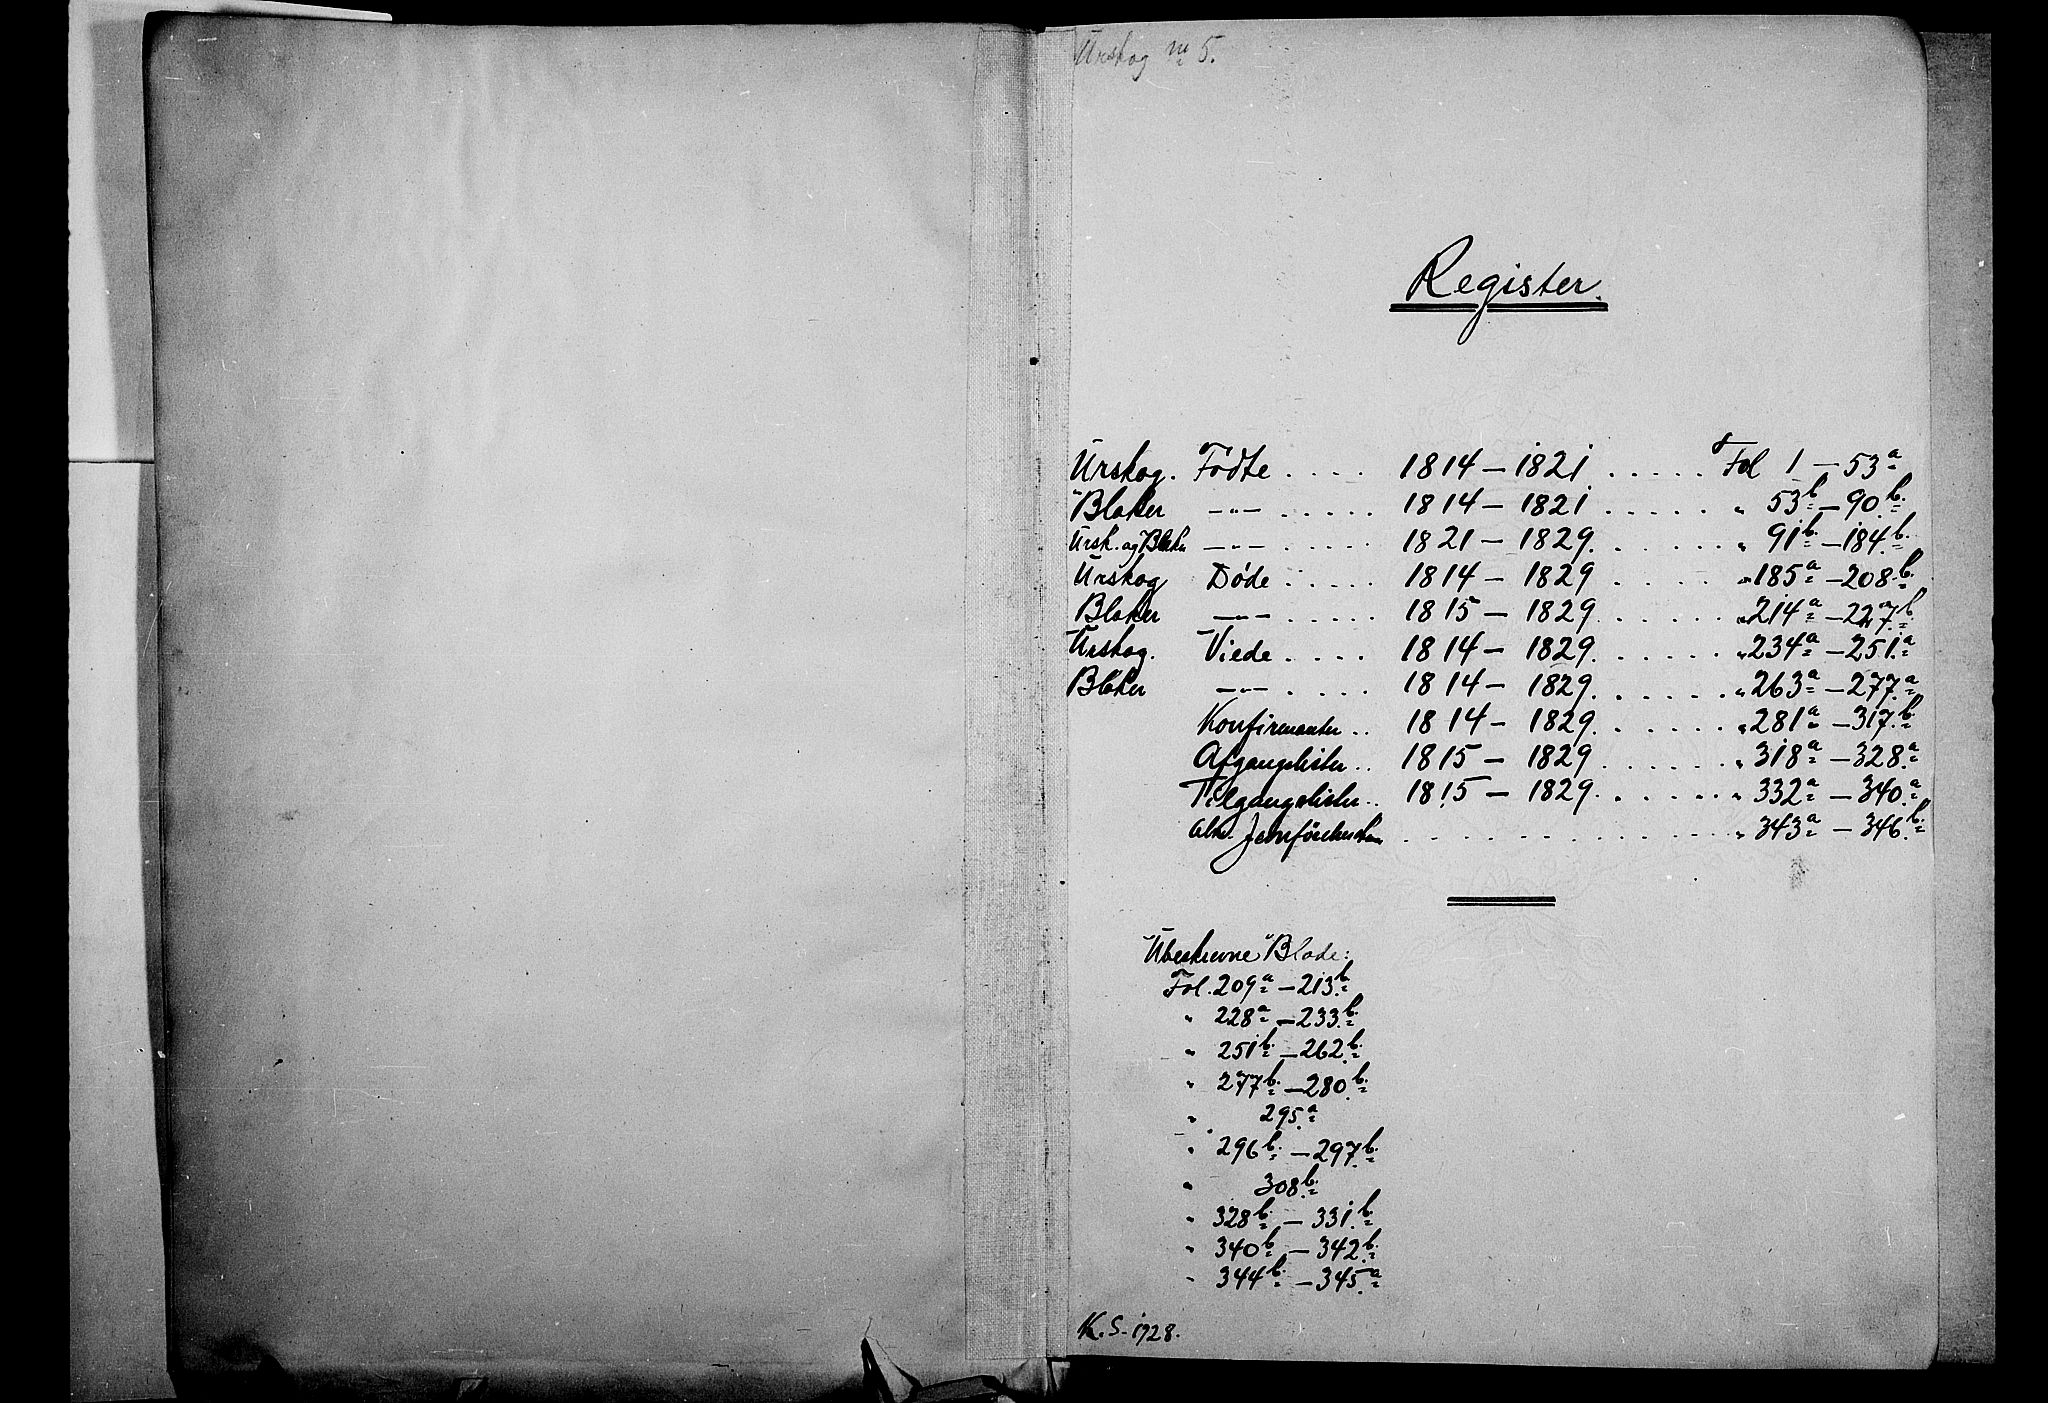 Urskog № 5.
Register.
Urskog. Födte .... 1814 — 1821 ..... Fol 1 — 53a
Blaker —„— ..... 1814 — 1821 ...... „ 53b — 90.b
Ursk. og Blaker —„— ..... 1821 — 1829. ...... „ 91b — 184.b
Urskog Døde ..... 1814 — 1829 ...... „ 185a — 208.b
Blaker —„— ..... 1815 — 1829. ...... „ 214a — 227.b
Urskog. Viede .... 1814 — 1829. ...... „ 234a — 251.a
Blaker —„— .... 1814 — 1829. ...... „ 263a — 277.a
Konfirmanter .. 1814 — 1829. ...... „ 281a — 317.b
Afgangslister .. 1815 — 1829. ...... „ 318a — 328.a
Tilgangslister .. 1815 — 1829. ...... „ 332a — 340.a
Alm. Jevnførelser ............... „ 343a — 346.b
Ubeskrevne Blade:
Fol. 209a — 213.b
„ 228a — 233.b
„ 251b — 262.b
„ 277b — 280.b
„ 295.a
„ 296b — 297.b
„ 308b
„ 328b — 331.b
„ 340b — 342.b
„ 344b — 345.a
K. S. 1928.